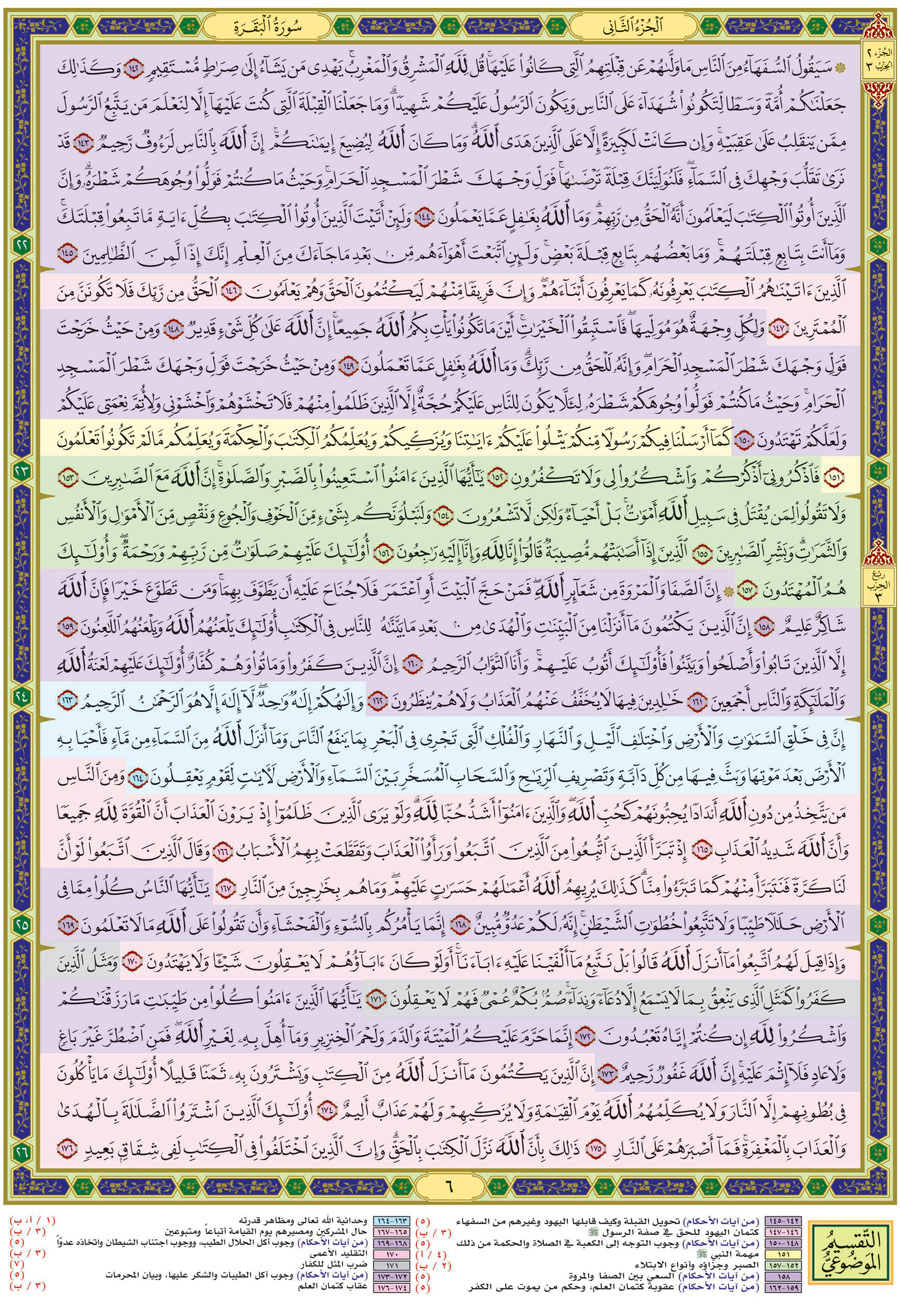 سُورَةُ الْبَقَرَةِ
الْجُزْءُ الثَّانِي
الجُزء ٢
الحِزْبُ ٣
۞ سَيَقُولُ ٱلسُّفَهَآءُ مِنَ ٱلنَّاسِ مَا وَلَّىٰهُمْ عَن قِبْلَتِهِمُ ٱلَّتِى كَانُوا۟ عَلَيْهَا ۚ قُل لِّلَّهِ ٱلْمَشْرِقُ وَٱلْمَغْرِبُ ۚ يَهْدِى مَن يَشَآءُ إِلَىٰ صِرَٰطٍ مُّسْتَقِيمٍ ١٤٢ وَكَذَٰلِكَ
جَعَلْنَٰكُمْ أُمَّةً وَسَطًا لِّتَكُونُوا۟ شُهَدَآءَ عَلَى ٱلنَّاسِ وَيَكُونَ ٱلرَّسُولُ عَلَيْكُمْ شَهِيدًا ۗ وَمَا جَعَلْنَا ٱلْقِبْلَةَ ٱلَّتِى كُنتَ عَلَيْهَآ إِلَّا لِنَعْلَمَ مَن يَتَّبِعُ ٱلرَّسُولَ
مِمَّن يَنقَلِبُ عَلَىٰ عَقِبَيْهِ ۚ وَإِن كَانَتْ لَكَبِيرَةً إِلَّا عَلَى ٱلَّذِينَ هَدَى ٱللَّهُ ۗ وَمَا كَانَ ٱللَّهُ لِيُضِيعَ إِيمَٰنَكُمْ ۚ إِنَّ ٱللَّهَ بِٱلنَّاسِ لَرَءُوفٌ رَّحِيمٌ ١٤٣ قَدْ
نَرَىٰ تَقَلُّبَ وَجْهِكَ فِى ٱلسَّمَآءِ ۖ فَلَنُوَلِّيَنَّكَ قِبْلَةً تَرْضَىٰهَا ۚ فَوَلِّ وَجْهَكَ شَطْرَ ٱلْمَسْجِدِ ٱلْحَرَامِ ۚ وَحَيْثُ مَا كُنتُمْ فَوَلُّوا۟ وُجُوهَكُمْ شَطْرَهُۥ ۗ وَإِنَّ
ٱلَّذِينَ أُوتُوا۟ ٱلْكِتَٰبَ لَيَعْلَمُونَ أَنَّهُ ٱلْحَقُّ مِن رَّبِّهِمْ ۗ وَمَا ٱللَّهُ بِغَٰفِلٍ عَمَّا يَعْمَلُونَ ١٤٤ وَلَئِنْ أَتَيْتَ ٱلَّذِينَ أُوتُوا۟ ٱلْكِتَٰبَ بِكُلِّ ءَايَةٍ مَّا تَبِعُوا۟ قِبْلَتَكَ ۚ
وَمَآ أَنتَ بِتَابِعٍ قِبْلَتَهُمْ ۚ وَمَا بَعْضُهُم بِتَابِعٍ قِبْلَةَ بَعْضٍ ۚ وَلَئِنِ ٱتَّبَعْتَ أَهْوَآءَهُم مِّنۢ بَعْدِ مَا جَآءَكَ مِنَ ٱلْعِلْمِ ۙ إِنَّكَ إِذًا لَّمِنَ ٱلظَّٰلِمِينَ ١٤٥
ٱلَّذِينَ ءَاتَيْنَٰهُمُ ٱلْكِتَٰبَ يَعْرِفُونَهُۥ كَمَا يَعْرِفُونَ أَبْنَآءَهُمْ ۖ وَإِنَّ فَرِيقًا مِّنْهُمْ لَيَكْتُمُونَ ٱلْحَقَّ وَهُمْ يَعْلَمُونَ ١٤٦ ٱلْحَقُّ مِن رَّبِّكَ فَلَا تَكُونَنَّ مِنَ
ٱلْمُمْتَرِينَ ١٤٧ وَلِكُلٍّ وِجْهَةٌ هُوَ مُوَلِّيهَا ۖ فَٱسْتَبِقُوا۟ ٱلْخَيْرَٰتِ ۚ أَيْنَ مَا تَكُونُوا۟ يَأْتِ بِكُمُ ٱللَّهُ جَمِيعًا ۚ إِنَّ ٱللَّهَ عَلَىٰ كُلِّ شَىْءٍ قَدِيرٌ ١٤٨ وَمِنْ حَيْثُ خَرَجْتَ
فَوَلِّ وَجْهَكَ شَطْرَ ٱلْمَسْجِدِ ٱلْحَرَامِ ۖ وَإِنَّهُۥ لَلْحَقُّ مِن رَّبِّكَ ۗ وَمَا ٱللَّهُ بِغَٰفِلٍ عَمَّا تَعْمَلُونَ ١٤٩ وَمِنْ حَيْثُ خَرَجْتَ فَوَلِّ وَجْهَكَ شَطْرَ ٱلْمَسْجِدِ
ٱلْحَرَامِ ۚ وَحَيْثُ مَا كُنتُمْ فَوَلُّوا۟ وُجُوهَكُمْ شَطْرَهُۥ لِئَلَّا يَكُونَ لِلنَّاسِ عَلَيْكُمْ حُجَّةٌ إِلَّا ٱلَّذِينَ ظَلَمُوا۟ مِنْهُمْ فَلَا تَخْشَوْهُمْ وَٱخْشَوْنِى وَلِأُتِمَّ نِعْمَتِى عَلَيْكُمْ
وَلَعَلَّكُمْ تَهْتَدُونَ ١٥٠ كَمَآ أَرْسَلْنَا فِيكُمْ رَسُولًا مِّنكُمْ يَتْلُوا۟ عَلَيْكُمْ ءَايَٰتِنَا وَيُزَكِّيكُمْ وَيُعَلِّمُكُمُ ٱلْكِتَٰبَ وَٱلْحِكْمَةَ وَيُعَلِّمُكُم مَّا لَمْ تَكُونُوا۟ تَعْلَمُونَ
١٥١ فَٱذْكُرُونِىٓ أَذْكُرْكُمْ وَٱشْكُرُوا۟ لِى وَلَا تَكْفُرُونِ ١٥٢ يَٰٓأَيُّهَا ٱلَّذِينَ ءَامَنُوا۟ ٱسْتَعِينُوا۟ بِٱلصَّبْرِ وَٱلصَّلَوٰةِ ۚ إِنَّ ٱللَّهَ مَعَ ٱلصَّٰبِرِينَ ١٥٣
وَلَا تَقُولُوا۟ لِمَن يُقْتَلُ فِى سَبِيلِ ٱللَّهِ أَمْوَٰتٌۢ ۚ بَلْ أَحْيَآءٌ وَلَٰكِن لَّا تَشْعُرُونَ ١٥٤ وَلَنَبْلُوَنَّكُم بِشَىْءٍ مِّنَ ٱلْخَوْفِ وَٱلْجُوعِ وَنَقْصٍ مِّنَ ٱلْأَمْوَٰلِ وَٱلْأَنفُسِ
وَٱلثَّمَرَٰتِ ۗ وَبَشِّرِ ٱلصَّٰبِرِينَ ١٥٥ ٱلَّذِينَ إِذَآ أَصَٰبَتْهُم مُّصِيبَةٌ قَالُوٓا۟ إِنَّا لِلَّهِ وَإِنَّآ إِلَيْهِ رَٰجِعُونَ ١٥٦ أُو۟لَٰٓئِكَ عَلَيْهِمْ صَلَوَٰتٌ مِّن رَّبِّهِمْ وَرَحْمَةٌ ۖ وَأُو۟لَٰٓئِكَ
هُمُ ٱلْمُهْتَدُونَ ١٥٧ ۞ إِنَّ ٱلصَّفَا وَٱلْمَرْوَةَ مِن شَعَآئِرِ ٱللَّهِ ۖ فَمَنْ حَجَّ ٱلْبَيْتَ أَوِ ٱعْتَمَرَ فَلَا جُنَاحَ عَلَيْهِ أَن يَطَّوَّفَ بِهِمَا ۚ وَمَن تَطَوَّعَ خَيْرًا فَإِنَّ ٱللَّهَ
شَاكِرٌ عَلِيمٌ ١٥٨ إِنَّ ٱلَّذِينَ يَكْتُمُونَ مَآ أَنزَلْنَا مِنَ ٱلْبَيِّنَٰتِ وَٱلْهُدَىٰ مِنۢ بَعْدِ مَا بَيَّنَّٰهُ لِلنَّاسِ فِى ٱلْكِتَٰبِ ۙ أُو۟لَٰٓئِكَ يَلْعَنُهُمُ ٱللَّهُ وَيَلْعَنُهُمُ ٱللَّٰعِنُونَ ١٥٩
إِلَّا ٱلَّذِينَ تَابُوا۟ وَأَصْلَحُوا۟ وَبَيَّنُوا۟ فَأُو۟لَٰٓئِكَ أَتُوبُ عَلَيْهِمْ ۚ وَأَنَا ٱلتَّوَّابُ ٱلرَّحِيمُ ١٦٠ إِنَّ ٱلَّذِينَ كَفَرُوا۟ وَمَاتُوا۟ وَهُمْ كُفَّارٌ أُو۟لَٰٓئِكَ عَلَيْهِمْ لَعْنَةُ ٱللَّهِ
وَٱلْمَلَٰٓئِكَةِ وَٱلنَّاسِ أَجْمَعِينَ ١٦١ خَٰلِدِينَ فِيهَا ۖ لَا يُخَفَّفُ عَنْهُمُ ٱلْعَذَابُ وَلَا هُمْ يُنظَرُونَ ١٦٢ وَإِلَٰهُكُمْ إِلَٰهٌ وَٰحِدٌ ۖ لَّآ إِلَٰهَ إِلَّا هُوَ ٱلرَّحْمَٰنُ ٱلرَّحِيمُ ١٦٣
إِنَّ فِى خَلْقِ ٱلسَّمَٰوَٰتِ وَٱلْأَرْضِ وَٱخْتِلَٰفِ ٱلَّيْلِ وَٱلنَّهَارِ وَٱلْفُلْكِ ٱلَّتِى تَجْرِى فِى ٱلْبَحْرِ بِمَا يَنفَعُ ٱلنَّاسَ وَمَآ أَنزَلَ ٱللَّهُ مِنَ ٱلسَّمَآءِ مِن مَّآءٍ فَأَحْيَا بِهِ
ٱلْأَرْضَ بَعْدَ مَوْتِهَا وَبَثَّ فِيهَا مِن كُلِّ دَآبَّةٍ وَتَصْرِيفِ ٱلرِّيَٰحِ وَٱلسَّحَابِ ٱلْمُسَخَّرِ بَيْنَ ٱلسَّمَآءِ وَٱلْأَرْضِ لَءَايَٰتٍ لِّقَوْمٍ يَعْقِلُونَ ١٦٤ وَمِنَ ٱلنَّاسِ
مَن يَتَّخِذُ مِن دُونِ ٱللَّهِ أَندَادًا يُحِبُّونَهُمْ كَحُبِّ ٱللَّهِ ۖ وَٱلَّذِينَ ءَامَنُوٓا۟ أَشَدُّ حُبًّا لِّلَّهِ ۗ وَلَوْ يَرَى ٱلَّذِينَ ظَلَمُوٓا۟ إِذْ يَرَوْنَ ٱلْعَذَابَ أَنَّ ٱلْقُوَّةَ لِلَّهِ جَمِيعًا
وَأَنَّ ٱللَّهَ شَدِيدُ ٱلْعَذَابِ ١٦٥ إِذْ تَبَرَّأَ ٱلَّذِينَ ٱتُّبِعُوا۟ مِنَ ٱلَّذِينَ ٱتَّبَعُوا۟ وَرَأَوُا۟ ٱلْعَذَابَ وَتَقَطَّعَتْ بِهِمُ ٱلْأَسْبَابُ ١٦٦ وَقَالَ ٱلَّذِينَ ٱتَّبَعُوا۟ لَوْ أَنَّ
لَنَا كَرَّةً فَنَتَبَرَّأَ مِنْهُمْ كَمَا تَبَرَّءُوا۟ مِنَّا ۗ كَذَٰلِكَ يُرِيهِمُ ٱللَّهُ أَعْمَٰلَهُمْ حَسَرَٰتٍ عَلَيْهِمْ ۖ وَمَا هُم بِخَٰرِجِينَ مِنَ ٱلنَّارِ ١٦٧ يَٰٓأَيُّهَا ٱلنَّاسُ كُلُوا۟ مِمَّا فِى
ٱلْأَرْضِ حَلَٰلًا طَيِّبًا وَلَا تَتَّبِعُوا۟ خُطُوَٰتِ ٱلشَّيْطَٰنِ ۚ إِنَّهُۥ لَكُمْ عَدُوٌّ مُّبِينٌ ١٦٨ إِنَّمَا يَأْمُرُكُم بِٱلسُّوٓءِ وَٱلْفَحْشَآءِ وَأَن تَقُولُوا۟ عَلَى ٱللَّهِ مَا لَا تَعْلَمُونَ ١٦٩
وَإِذَا قِيلَ لَهُمُ ٱتَّبِعُوا۟ مَآ أَنزَلَ ٱللَّهُ قَالُوا۟ بَلْ نَتَّبِعُ مَآ أَلْفَيْنَا عَلَيْهِ ءَابَآءَنَآ ۗ أَوَلَوْ كَانَ ءَابَآؤُهُمْ لَا يَعْقِلُونَ شَيْـًٔا وَلَا يَهْتَدُونَ ١٧٠ وَمَثَلُ ٱلَّذِينَ
كَفَرُوا۟ كَمَثَلِ ٱلَّذِى يَنْعِقُ بِمَا لَا يَسْمَعُ إِلَّا دُعَآءً وَنِدَآءً ۚ صُمٌّۢ بُكْمٌ عُمْىٌ فَهُمْ لَا يَعْقِلُونَ ١٧١ يَٰٓأَيُّهَا ٱلَّذِينَ ءَامَنُوا۟ كُلُوا۟ مِن طَيِّبَٰتِ مَا رَزَقْنَٰكُمْ
وَٱشْكُرُوا۟ لِلَّهِ إِن كُنتُمْ إِيَّاهُ تَعْبُدُونَ ١٧٢ إِنَّمَا حَرَّمَ عَلَيْكُمُ ٱلْمَيْتَةَ وَٱلدَّمَ وَلَحْمَ ٱلْخِنزِيرِ وَمَآ أُهِلَّ بِهِۦ لِغَيْرِ ٱللَّهِ ۖ فَمَنِ ٱضْطُرَّ غَيْرَ بَاغٍ
وَلَا عَادٍ فَلَآ إِثْمَ عَلَيْهِ ۚ إِنَّ ٱللَّهَ غَفُورٌ رَّحِيمٌ ١٧٣ إِنَّ ٱلَّذِينَ يَكْتُمُونَ مَآ أَنزَلَ ٱللَّهُ مِنَ ٱلْكِتَٰبِ وَيَشْتَرُونَ بِهِۦ ثَمَنًا قَلِيلًا ۙ أُو۟لَٰٓئِكَ مَا يَأْكُلُونَ
فِى بُطُونِهِمْ إِلَّا ٱلنَّارَ وَلَا يُكَلِّمُهُمُ ٱللَّهُ يَوْمَ ٱلْقِيَٰمَةِ وَلَا يُزَكِّيهِمْ وَلَهُمْ عَذَابٌ أَلِيمٌ ١٧٤ أُو۟لَٰٓئِكَ ٱلَّذِينَ ٱشْتَرَوُا۟ ٱلضَّلَٰلَةَ بِٱلْهُدَىٰ
وَٱلْعَذَابَ بِٱلْمَغْفِرَةِ ۚ فَمَآ أَصْبَرَهُمْ عَلَى ٱلنَّارِ ١٧٥ ذَٰلِكَ بِأَنَّ ٱللَّهَ نَزَّلَ ٱلْكِتَٰبَ بِٱلْحَقِّ ۗ وَإِنَّ ٱلَّذِينَ ٱخْتَلَفُوا۟ فِى ٱلْكِتَٰبِ لَفِى شِقَاقٍۭ بَعِيدٍ ١٧٦
رُبْعُ
الحِزْب
٣
٢٢
٢٣
٢٤
٢٥
٢٦
٦
التَّقْسِيمُ
المَوْضُوعِيُّ
١٤٢-١٤٥ (من آيات الأحكام) تحويل القبلة وكيف قابلها اليهود وغيرهم من السفهاء (٥)
١٤٦-١٤٧ كتمان اليهود للحق في صفة الرسول ﷺ (٣ / ب)
١٤٨-١٥٠ (من آيات الأحكام) وجوب التوجه إلى الكعبة في الصلاة والحكمة من ذلك (٥)
١٥١ مهمة النبي ﷺ (٤ / أ)
١٥٢-١٥٧ الصبر وجزاؤه وأنواع الابتلاء (٢ / ب)
١٥٨ (من آيات الأحكام) السعي بين الصفا والمروة (٥)
١٥٩-١٦٢ (من آيات الأحكام) عقوبة كتمان العلم، وحكم من يموت على الكفر (٥)
١٦٣-١٦٤ وحدانية الله تعالى ومظاهر قدرته (١ / أ، ب)
١٦٥-١٦٧ حال المشركين ومصيرهم يوم القيامة أتباعاً ومتبوعين (٣ / ب)
١٦٨-١٦٩ (من آيات الأحكام) وجوب أكل الحلال الطيب، ووجوب اجتناب الشيطان واتخاذه عدوّاً (٥)
١٧٠ التقليد الأعمى (٣ / ب)
١٧١ ضرب المثل للكفار (٧)
١٧٢-١٧٣ (من آيات الأحكام) وجوب أكل الطيبات والشكر عليها، وبيان المحرمات (٥)
١٧٤-١٧٦ عقاب كتمان العلم (٣ / ب)